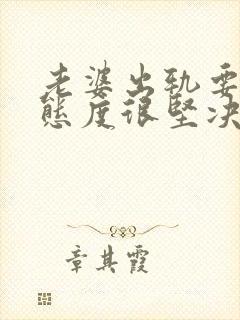 老婆出轨要
态度很坚决
章其霞